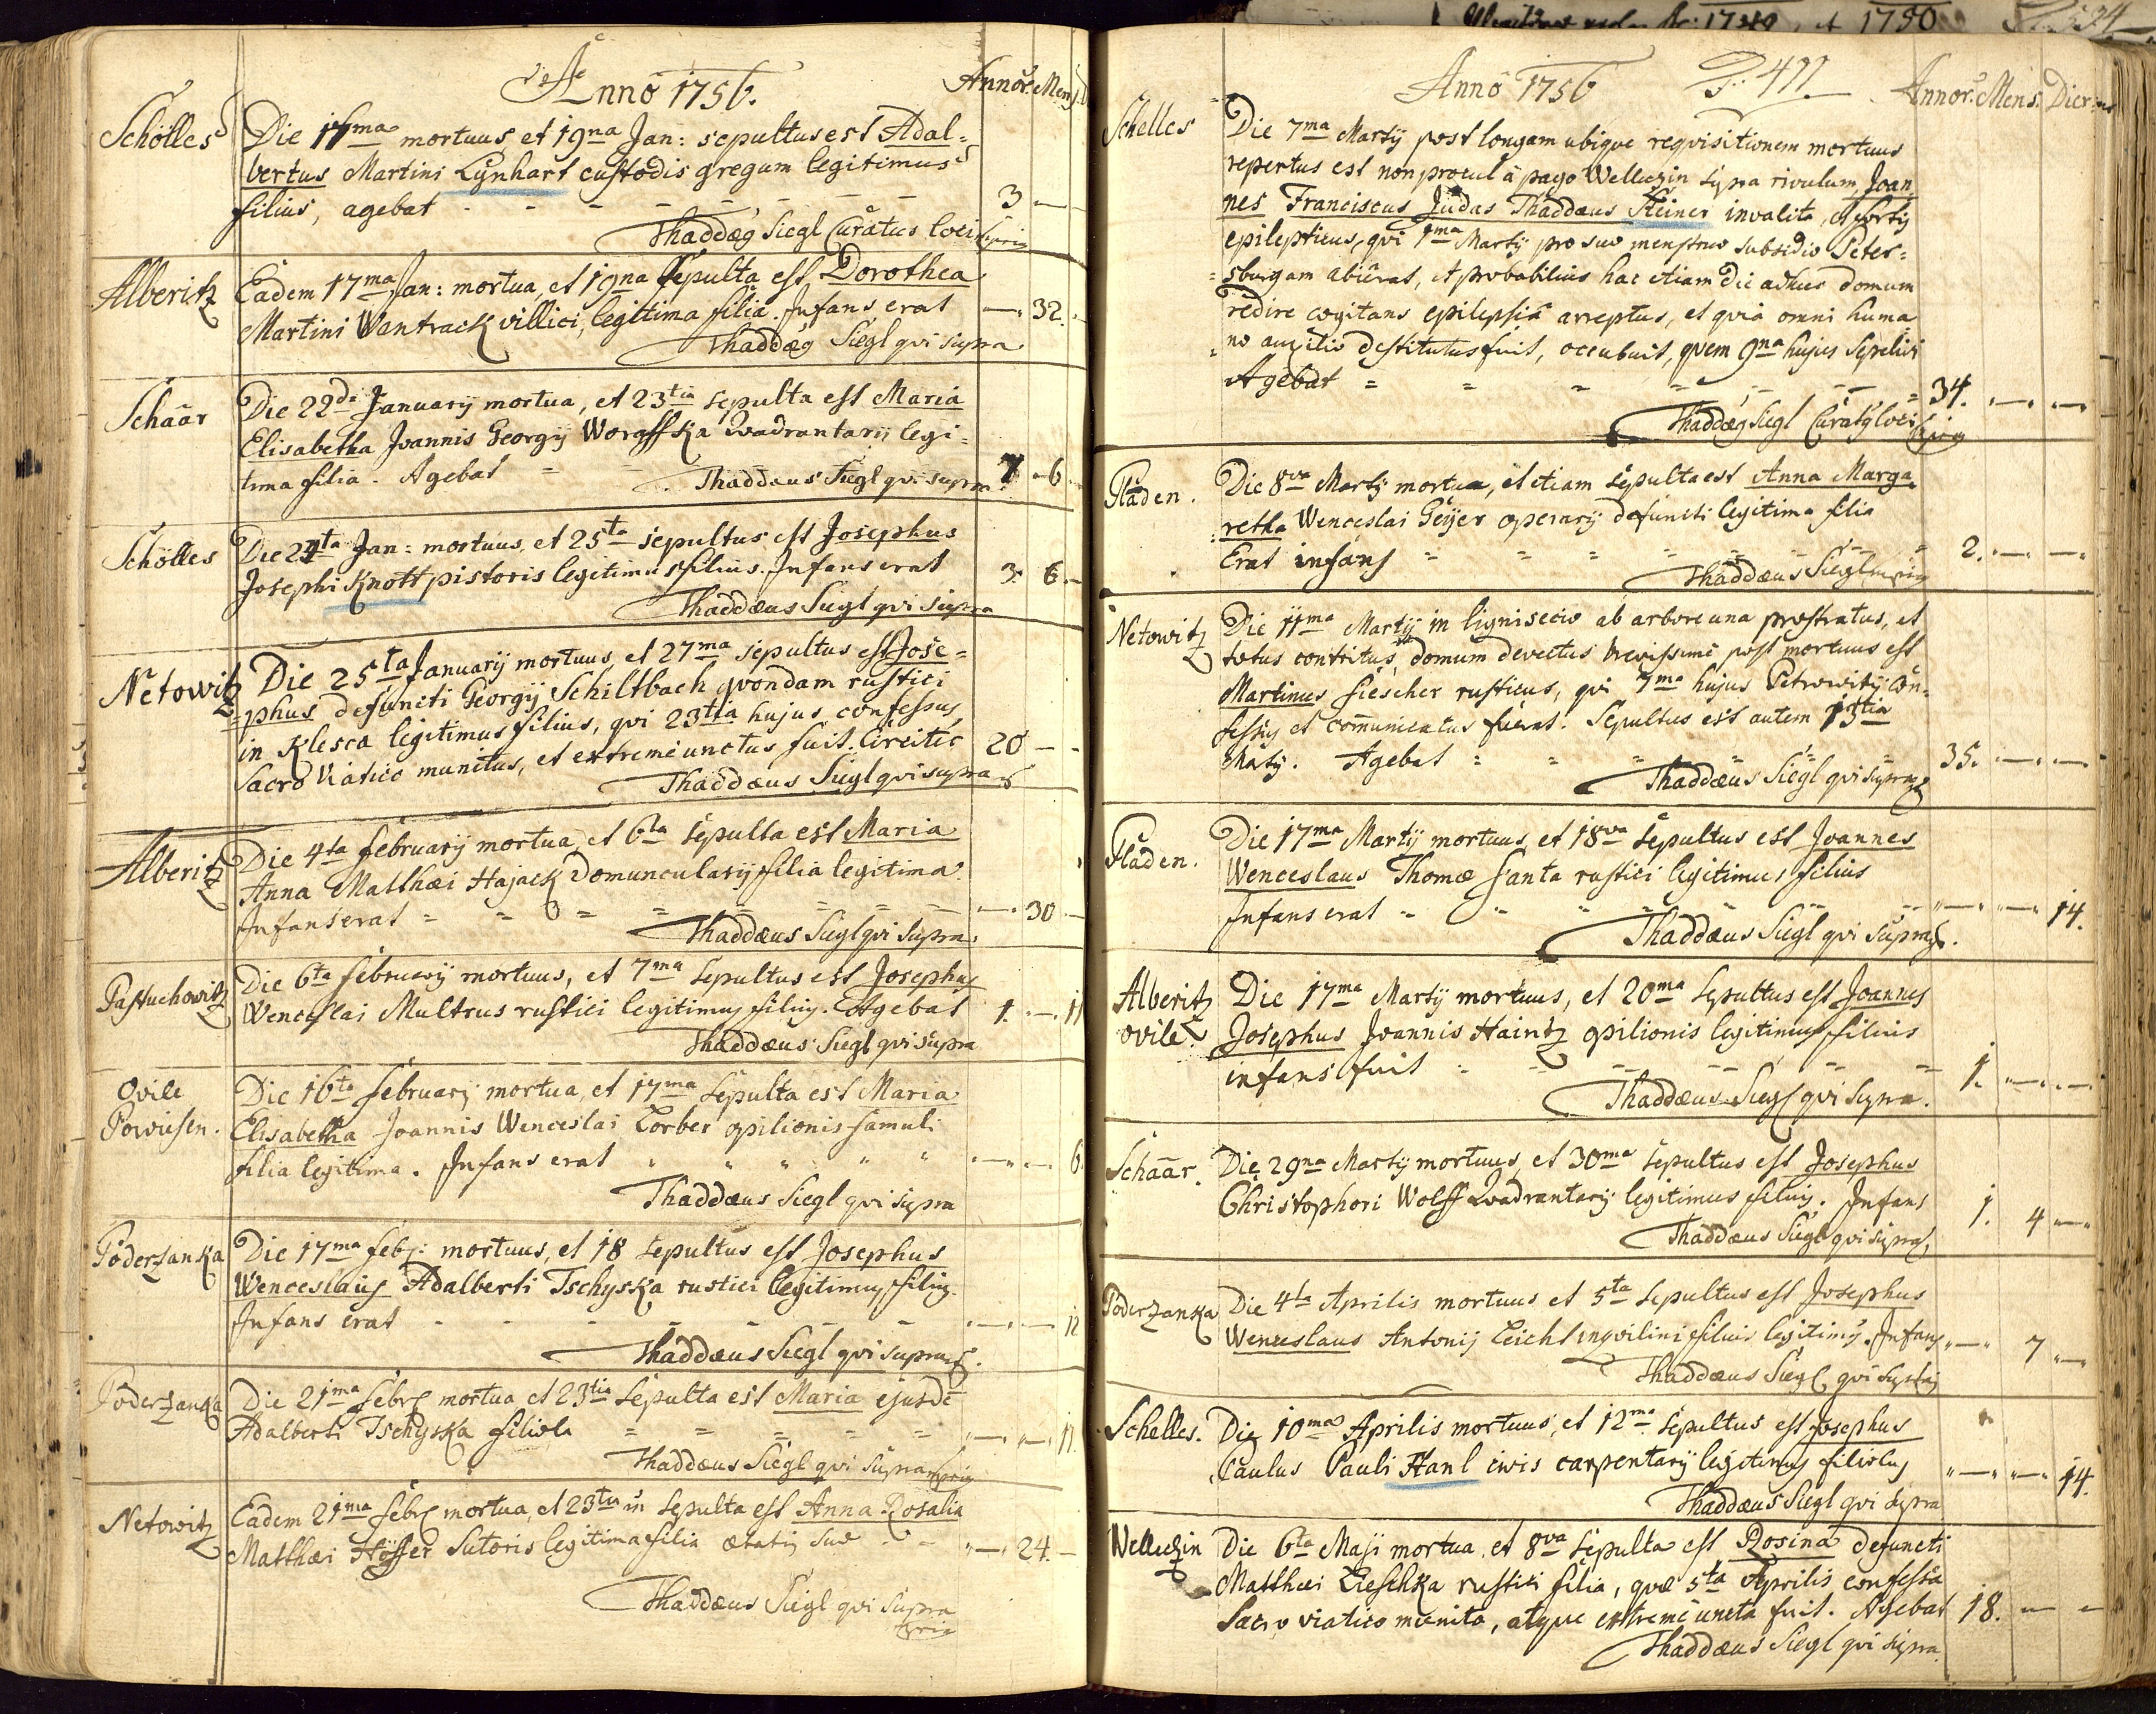 Anno 1756.
Annor. Mens. D
Schölles Die 17ma mortuus, et 19na Jan: sepultus est Adal=
bertus Martini Lynhart custodis gregum legitimus
filius, agebat - - - - - - - 3 —
Thaddæg Siegl Curatus loci mpria
Alberitz Eadem 17ma Jan: mortua, et 19na Sepulta est Dorothea
Martini Wentrack villici, legitima filia. Infans erat —. 32. -
Thaddæg Siegl qvi supra
Schaar Die 22da Januarij mortua, et 23tia sepulta est Maria
Elisabetha Joannis Georgij Worasska Qvadrantarij legi=
tima filia. Agebat = 7 - 6 -
Thaddæus Siegl qvi supra.
Schölles Die 24ta Jan: mortuus, et 25ta sepultus est Josephus
Josephi Knott pistoris legitimus filius. Infans erat 3. 6. -
Thaddæus Siegl qvi supra
Netowitz Die 25ta Januarij mortuus, et 27ma sepultus est Jose=
=phus defuncti Georgij Schiltbach qvondam rustici
in Klesca legitimus filius, qvi 23tia hujus confessus,
Sacro Viatico munitus, et extreme unctus fuit. Circiter 20 - -
Thaddæus Siegl qvi supra
Alberitz Die 4ta februarij mortua, et 6ta Sepulta est Maria
Anna Matthæi Hajack Domuncularij filia legitima.
Infans erat = = = = = = = —. 30 —
Thaddæus Siegl qvi supra.
Pastuchowitz Die 6ta februarij mortuus, et 7ma Sepultus est Josephus
Wenceslai Multrus rustici legitimus filius. Agebat 1. —. 11
Thaddæus Siegl qvi supra
Ovile
Powiesen. Die 16ta februarij mortua, et 17ma Sepulta est Maria
Elisabetha Joannis Wenceslai Lorber opilionis famuli
filia legitima. Infans erat " " " " " —. —. 6.
Thaddæus Siegl qvi supra
Poderzanka Die 17ma febr: mortuus, et 18 Sepultus est Josephus
Wenceslaus Adalberti Tschyska rustici legitimus filius.
Infans erat - - - - - - —. — 12
Thaddæus Siegl qvi supra.
Poderzanka Die 21ma febr mortua et 23tia Sepulta est Maria ejusdē
Adalberti Tschyska filiola = = = = = —. —. 11.
Thaddæus Siegl qvi supra mpria
Netowitz Eadem 21ma febr mortua, et 23tia sepulta est Anna Rosalia
Matthæi Höffer Sutoris legitima filia ætatis suæ - - —. 24. -
Thaddæus Siegl qvi supra
mpria
Anno 1756
Annor. Mens. Dier
Schelles Die 7ma Martij post longam ubiqve reqvisitionem mortuus
repertus est non procul à pago Welleczin supra rivulum, Joan
nes Franciscus Judas Thaddæus Steiner invalita, et fortis
epilepticus, qvi 1ma Martij pro suo menstruo subsidio Peter=
=sburgam abierat, et probabilius hac etiam die adhuc domum
redire cogitans epilepsiâ arreptus, et qvia omni huma
=no auxilio destitutus fuit, occubuit, qvem 9na hujus Sepelivi
Agebat = = = = = 34. —. —.
Thaddæg Siegl Curatg loci mpria
Fladen. Die 8va Martij mortua, et etiam sepulta est Anna Marga
=retha Wenceslai Geijer operarij defuncti legitima filia
Erat infans = = = = = = = 2. —. —.
Thaddæus Siegl mpria
Netowitz Die 11ma Martij in lignisecio ab arbore una prostratus, et
totus contritus, domum devectus brevissime post mortuus est
Martinus Fiescher rusticus, qvi 7ma hujus Petrowitij Con=
fessus et comunicatus fuerat. Sepultus est autem 13tia
Martij. Agebat = = = = = 35. —. —.
Thaddæus Siegl qvi supra
Fladen. Die 17ma Martij mortuus, et 18va Sepultus est Joannes
Wenceslaus Thomæ Fanta rustici legitimus filius
Infans erat = = = = = = —. —. 14.
Thaddæus Siegl qvi supra.
Alberitz
ovile Die 17ma Martij mortuus, et 20ma Sepultus est Joannes
Josephus Joannis Haintz opilionis legitimus filius
infans fuit = = = = = = 1. —. —.
Thaddæus Siegl qvi supra.
Schaar. Die 29na Martij mortuus, et 30ma Sepultus est Josephus
Christophori Wolff Qvadrantarij legitimus filius. Infans 1. 4 —.
Thaddæus Siegl qvi supra
Poderzanka Die 4ta Aprilis mortuus et 5ta Sepultus est Josephus
Wenceslaus Antonij Leichl inqvilini filius legitimg. Infans —. 7 —.
Thaddæus Siegl qvi supra
Schelles. Die 10ma Aprilis mortuus, et 12ma Sepultus est Josephus
Paulus Pauli Hanl civis carpentarij legitimus filiolus —. —. 14.
Thaddæus Siegl qvi supra
Welleczin Die 6ta Maji mortua, et 8va Sepulta est Rosina defuncti
Matthæi Lieschka rustici filia, qvæ 5ta Aprilis confessa
Sacro viatico munita, atqve extreme uncta fuit. Agebat 18. — —
Thaddæus Siegl qvi supra.